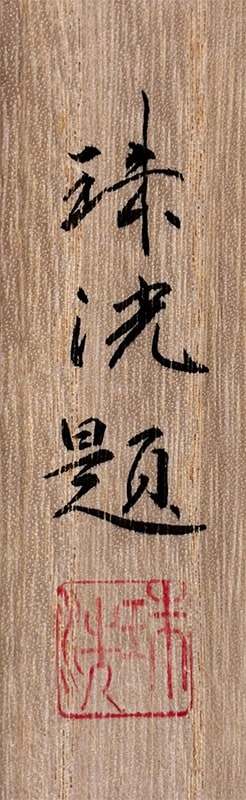 珠洸題
珠洸